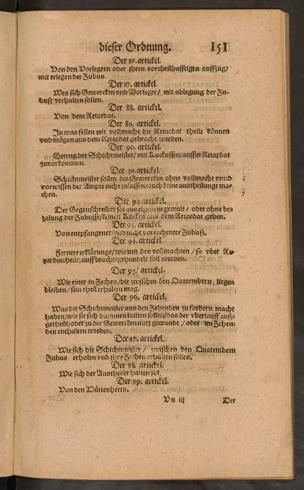 dieser Ordnung. 151
Der 86. artickel.
Von den Vorlegern oder ihren vortheilhafftigen auffzug/
mit erlegen der Zubus.
Der 87. artickel.
Wes sich Gewercken und Vorleger/ mit ablegung der Zu-
buss verhalten sollen.
Der 88. artickel.
Von dem Retardat.
Der 89. artickel.
In was fellen mit vollmacht die Retardat theile können
und mögen aus dem Retardat gebracht werden.
Der 90. artickel.
Betrug der Schichtmeister/ mit Kuckussen/ auffm Retardat
zuvorkommen.
Der 91. artickel.
Schichtmeister sollen die Gewercken ohne vollmacht und
vorwissen der Ampte nicht zulassen/ auch keine austheilunge ma-
chen.
Der 92. artickel.
Der Gegenschreiber sol aus eigener gewalt/ oder ohne be-
zalung der Zubusse/ keinen Kuckus aus dem Retardat geben.
Der 93. artickel.
Von entpfangener und nicht vorrechenter Zubuss.
Der 94. artickel.
Fernere erklärunge/ wie mit den vollmachten/ so uber Re-
tardattheil/ auffbracht/ gehandelt sol werden.
Der 95. artickel.
Wie einer in Zechen/ die zwischen den Quatembern, liegen
bleiben/ sein theil erhalten mag.
Der 96. artickel.
Was die Schichtmeister aus dem Zehenden zu fordern macht
haben/ wie sie sich darinnen halten sollen/ das der uberlauff ausz-
getheilt/ oder zu der Gewercken nutz gewandt/ oder im Zehen-
den enthalten werden.
Der 97. artickel.
Wie sich die Schichtmeister/ zwischen den Quatembern
Zubus erholen und ihre Zechen erhalten sollen.
Der 98. artickel.
Wie sich der Austheiler halten sol.
Der 99. artickel.
Von den Hüttenherrn.
Vu iij Der